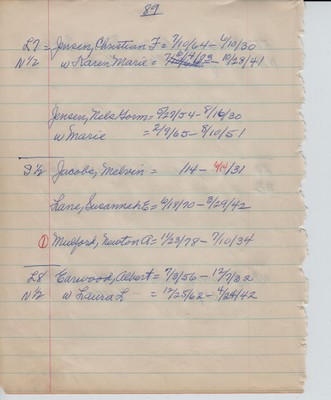 89
L7 = Jensen, Christian F = 7/10/64 - 6/10/30
N 1/2 w Karen Marie = 10/28/41
Jensen, Nels Gorm = 5/27/54 - 8/16/30
w Marie = 2/9/65 - 8/10/51
S 1/2 Jacobs, Melvin = 1/4 - 4/14/31
Lane, Susannah E = 6/18/70 - 3/29/42
① Mulford, Newton A = 11/23/78 - 7/10/34
L8 Earwood, Albert = 7/3/56 - 12/7/32
N 1/2 w Laura L = 12/25/62 - 4/24/42